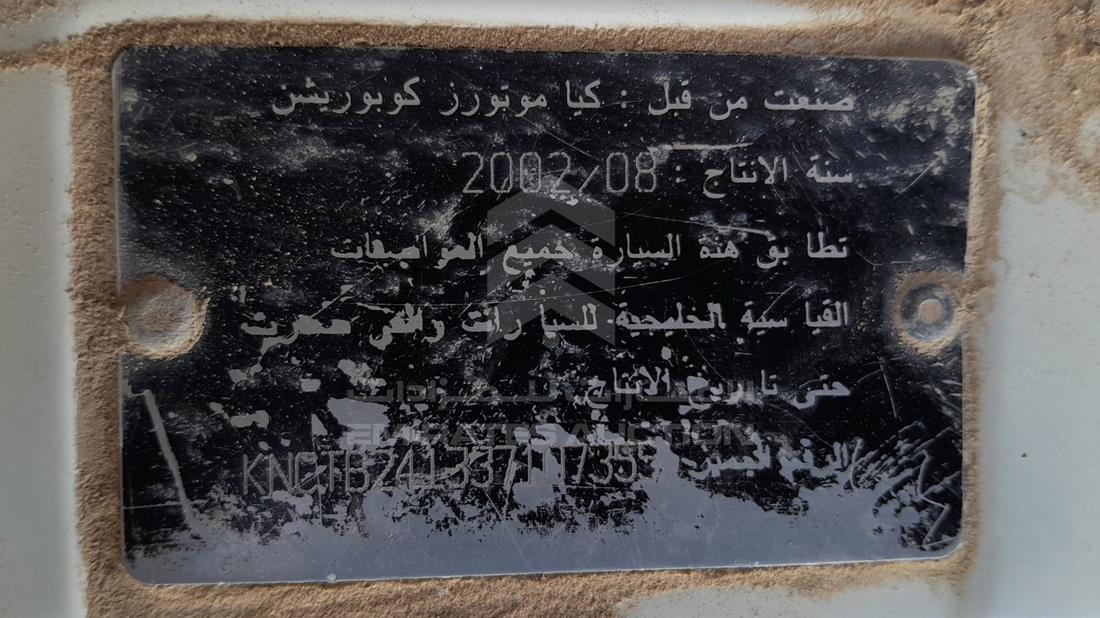 صنعت من قبل : كيا موتورز كوبوريشن
سنة الانتاج : 2002/08
تطابق هذه السيارة جميع المواصفات
القياسية الخليجية للسيارات والتي
حتى تاريخ الانتاج
الإمارات للمزادات
EMIRATES AUCTION